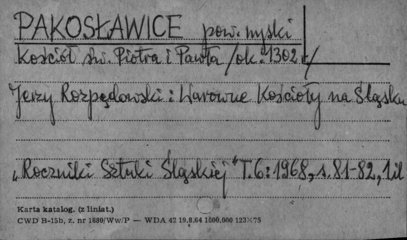 PAKOSŁAWICE pow. nyski
Kościół św. Piotra i Pawła /ok. 1302 r/
Jerzy Rozpędowski: Warowne Kościoły na Śląsku
"Roczniki Sztuki Śląskiej" T.6: 1968, s. 81-82, 1 il
Karta katalog. (z liniat.)
CWD B-15b, z. nr 1689/Ww/P — WDA 42 19.8.64 1000.000 123×75